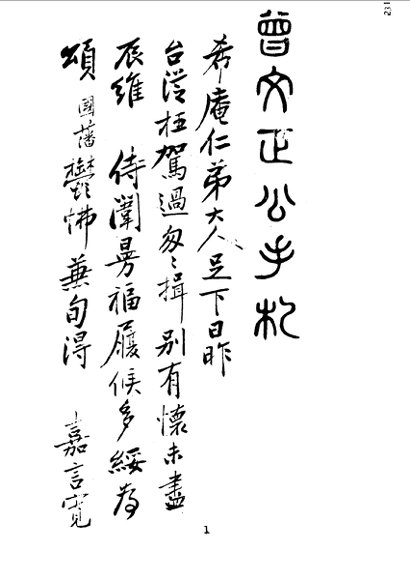 231
曾文正公手札
希庵仁弟大人足下日昨
台從枉駕過匆〻揖別有懷未盡
辰維 侍闈曼福履候多綏為
頌 國藩鬱怫兼旬得 嘉言寬
1